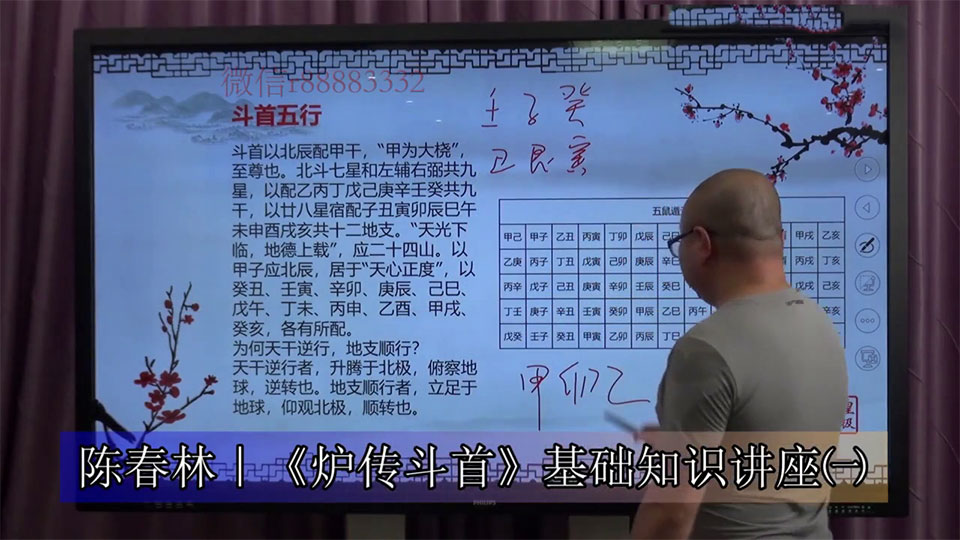 微信188883332
斗首五行
斗首以北辰配甲干，“甲为大桡”，
至尊也。北斗七星和左辅右弼共九
星，以配乙丙丁戊己庚辛壬癸共九
干，以廿八星宿配子丑寅卯辰巳午
未申酉戌亥共十二地支。“天光下
临，地德上载”，应二十四山。以
甲子应北辰，居于“天心正度”，以
癸丑、壬寅、辛卯、庚辰、己巳、
戊午、丁未、丙申、乙酉、甲戌、
癸亥，各有所配。
为何天干逆行，地支顺行？
天干逆行者，升腾于北极，俯察地
球，逆转也。地支顺行者，立足于
地球，仰观北极，顺转也。
壬子癸
丑艮寅
五鼠遁
甲己 甲子 乙丑 丙寅 丁卯 戊辰 己巳 甲戌 乙亥
乙庚 丙子 丁丑 戊寅 己卯 庚辰 辛巳 丙戌 丁亥
丙辛 戊子 己丑 庚寅 辛卯 壬辰 癸巳 戊戌 己亥
丁壬 庚子 辛丑 壬寅 癸卯 甲辰 乙巳 丙午 庚戌 辛亥
戊癸 壬子 癸丑 甲寅 乙卯 丙辰 丁巳 壬戌 癸亥
甲卯乙
PHILIPS
陈春林｜《炉传斗首》基础知识讲座(一)